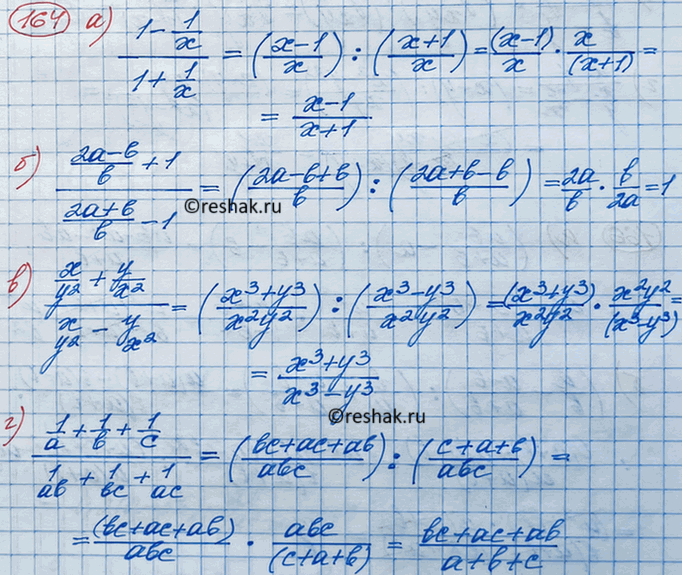 164 а) (1 - 1/x)/(1 + 1/x) = ((x-1)/x) : ((x+1)/x) = (x-1)/x · x/(x+1) =
= (x-1)/(x+1)
б) ((2a-b)/b + 1)/((2a+b)/b - 1) = ((2a-b+b)/b) : ((2a+b-b)/b) = 2a/b · b/2a = 1
©reshak.ru
в) (x/y² + y/x²)/(x/y² - y/x²) = ((x³+y³)/x²y²) : ((x³-y³)/x²y²) = (x³+y³)/x²y² · x²y²/(x³-y³) =
= (x³+y³)/(x³-y³)
©reshak.ru
г) (1/a + 1/b + 1/c)/(1/ab + 1/bc + 1/ac) = ((bc+ac+ab)/abc) : ((c+a+b)/abc) =
= (bc+ac+ab)/abc · abc/(c+a+b) = (bc+ac+ab)/(a+b+c)